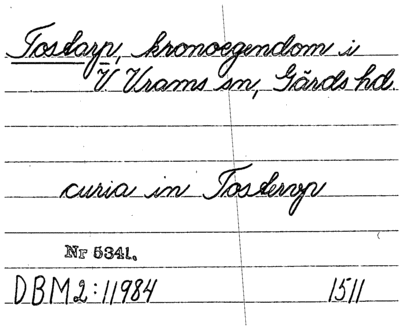 Tostarp, kronoegendom i
V Vrams sn, Gärds hd.
curia in Tosterup
Nr 5341.
DBM2:11984 1511